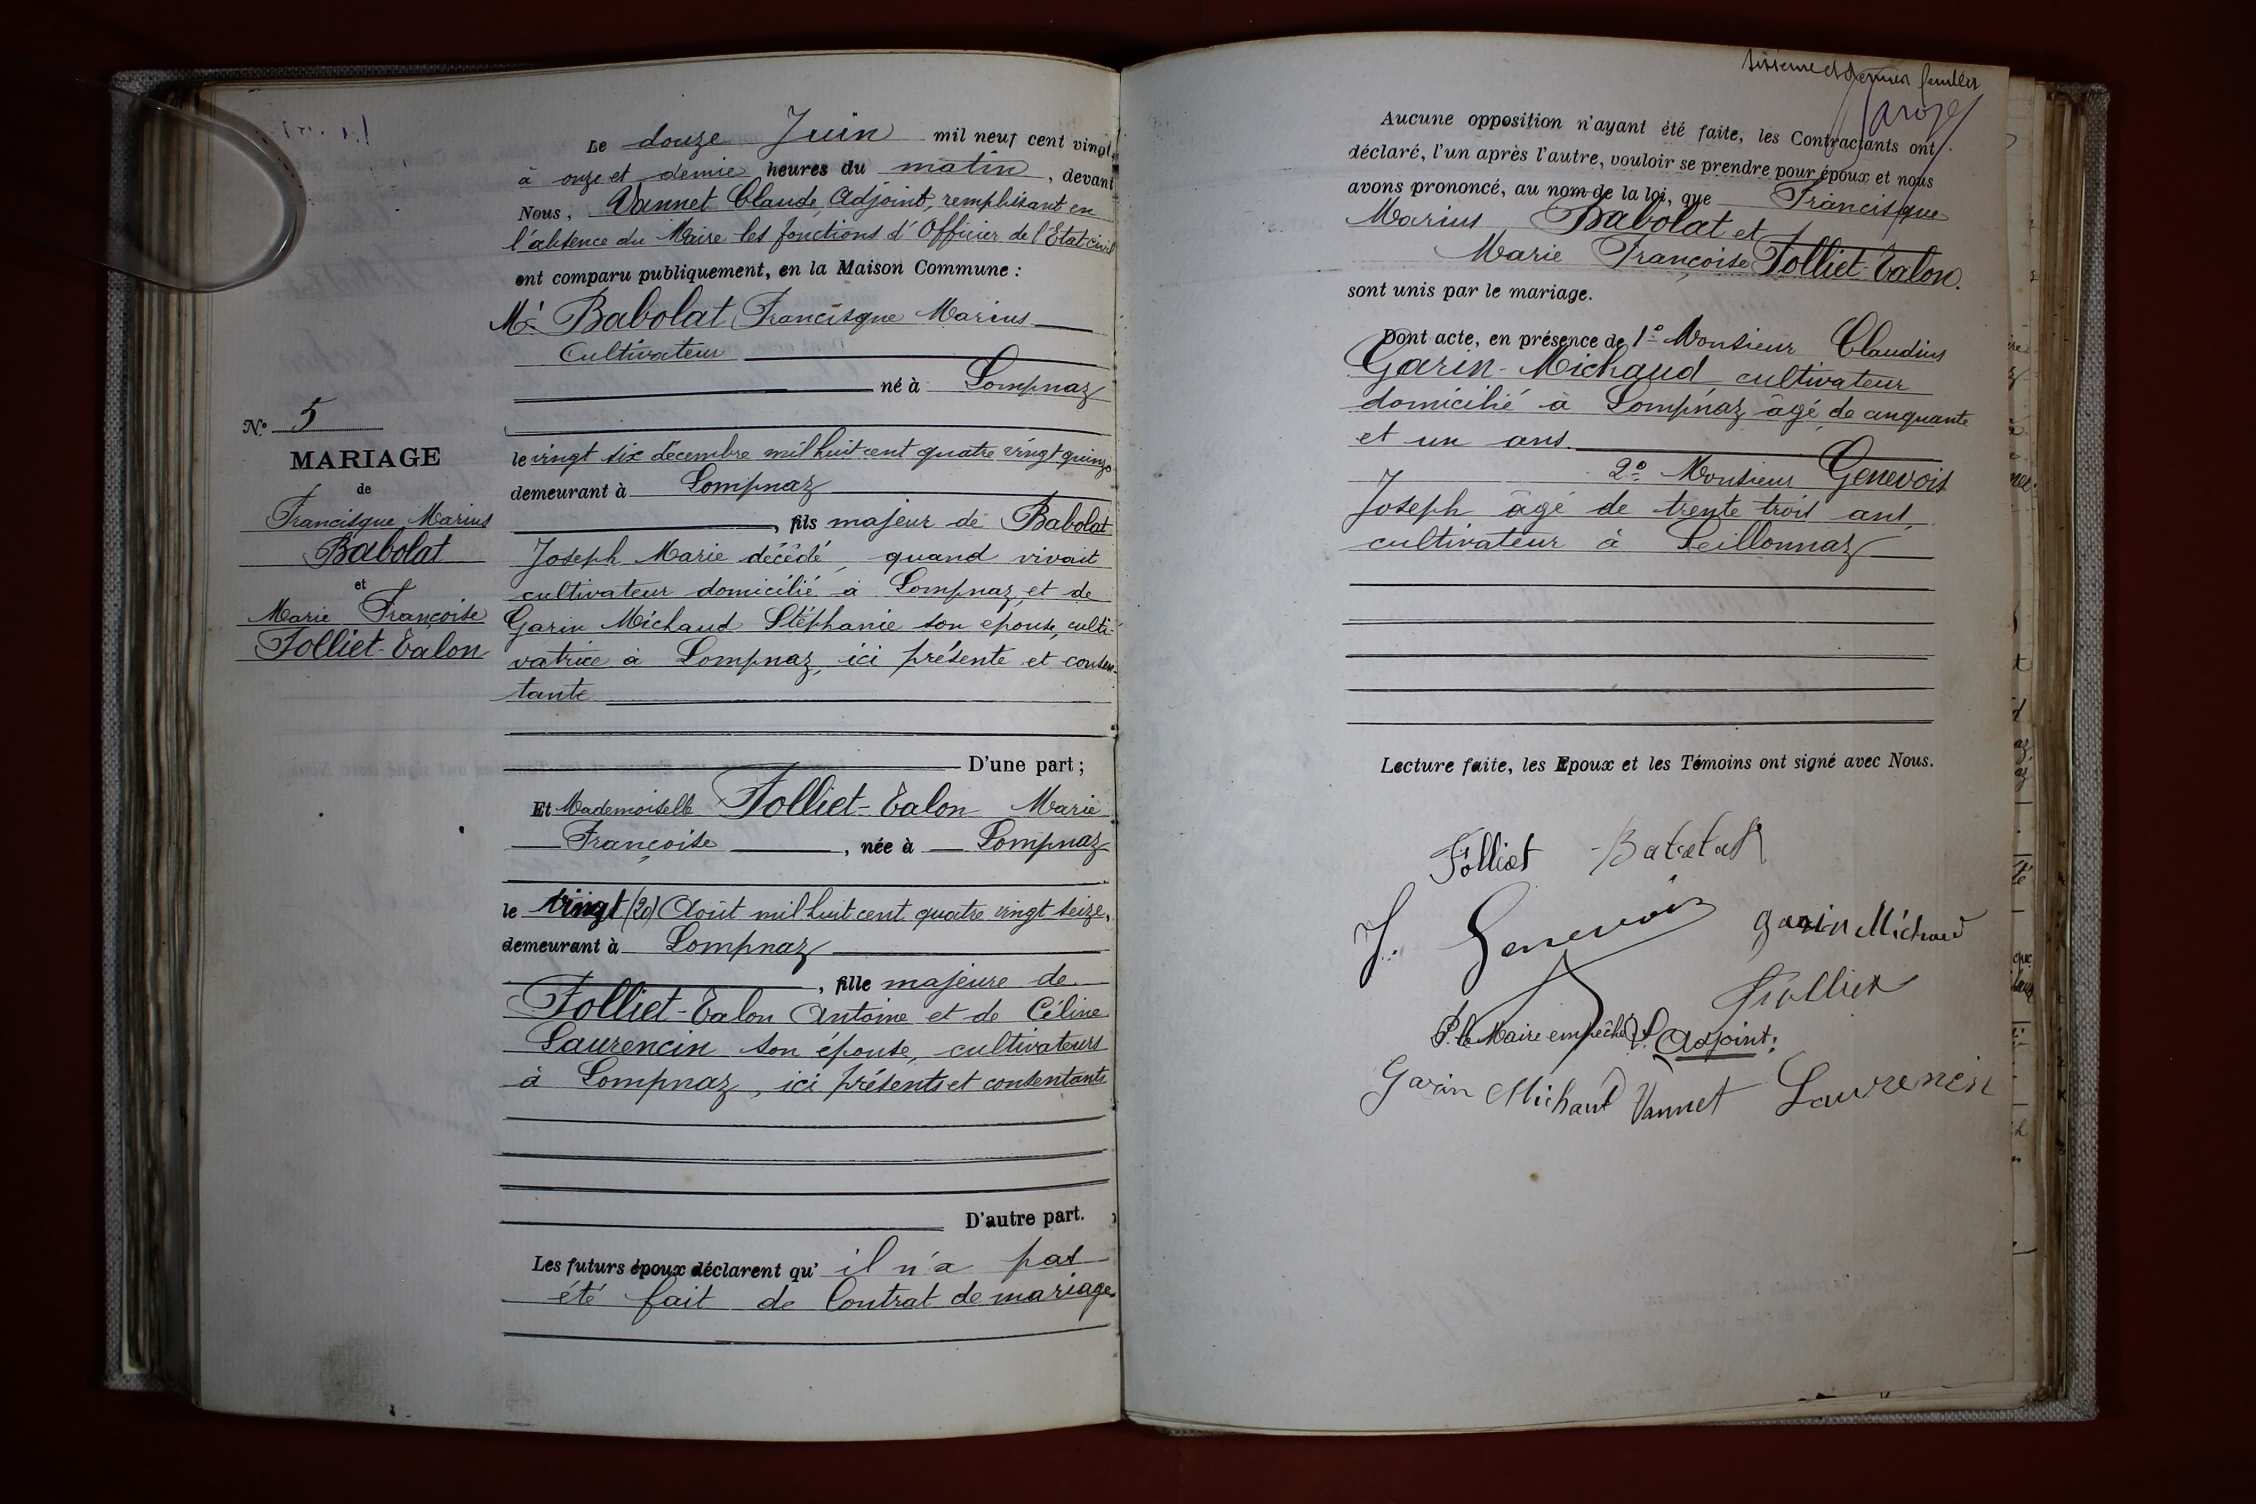 Le douze Juin mil neuf cent vingt,
à onze et demie heures du matin, devant
Nous, Vannet Claude, Adjoint, remplissant en
l'absence du Maire les fonctions d'Officier de l'Etat-civil
ont comparu publiquement, en la Maison Commune :
Mr Babolat Francisque Marius
Cultivateur
né à Lompnaz
le vingt six décembre mil huit cent quatre vingt quinze
demeurant à Lompnaz
, fils majeur de Babolat
Joseph Marie décédé, quand vivait
cultivateur domicilié à Lompnaz, et de
Garin Michaud Stéphanie son epouse, culti-
vatrice à Lompnaz, ici présente et consen-
tante
D'une part ;
Et Mademoiselle Folliet-Talon Marie
Françoise, née à Lompnaz
le vingt (20) Août mil huit cent quatre vingt seize,
demeurant à Lompnaz
, fille majeure de
Folliet-Talon Antoine et de Céline
Laurencin son épouse, cultivateurs
à Lompnaz, ici présents et consentants
D'autre part.
Les futurs époux déclarent qu'il n'a pas
été fait de Contrat de mariage
No 5
MARIAGE
de
Francisque Marius
Babolat
et
Marie Françoise
Folliet-Talon
et dernier feuillet
Aucune opposition n'ayant été faite, les Contractants ont
déclaré, l'un après l'autre, vouloir se prendre pour époux et nous
avons prononcé, au nom de la loi, que Francisque
Marius Babolat et
Marie Françoise Folliet-Talon.
sont unis par le mariage.
Dont acte, en présence de 1º Monsieur Claudius
Garin-Michaud, cultivateur
domicilié à Lompnaz âgé de cinquante
et un ans.
2º Monsieur Genevois
Joseph âgé de trente trois ans,
cultivateur à Seillonnaz
Lecture faite, les Epoux et les Témoins ont signé avec Nous.
Folliet Babolat
J. Genevois Garin Michaud
Folliet
P. le Maire empêché, l'Adjoint:
Garin Michaud Vannet Laurencin